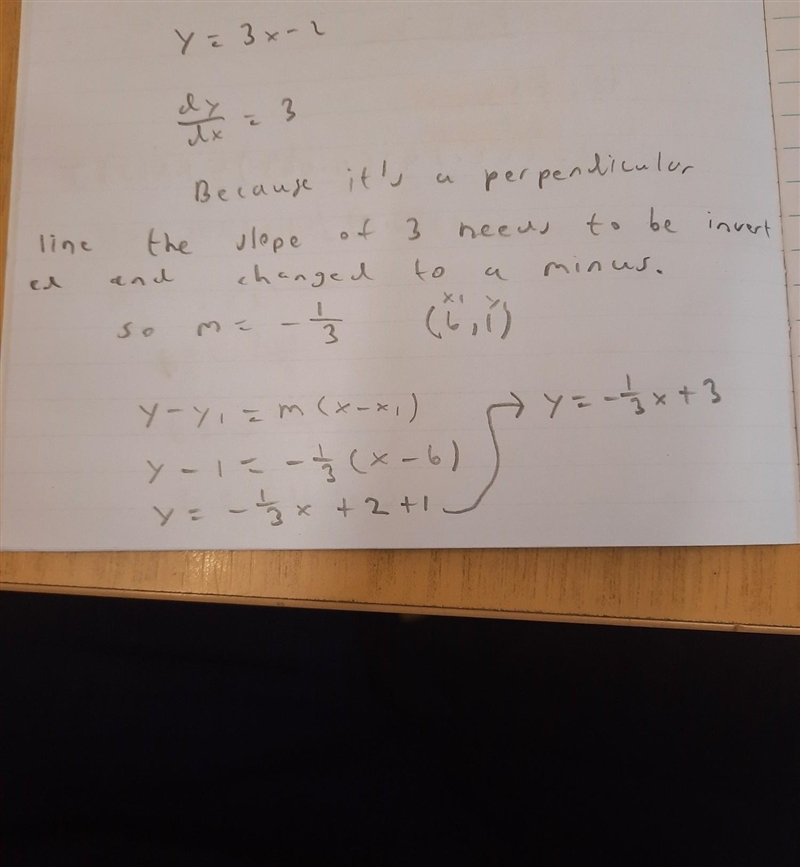 y = 3x - 2
dy/dx = 3
Because it's a perpendicular
line the slope of 3 needs to be invert
ed and changed to a minus.
so m = -1/3 (6, 1) x1 y1
y - y1 = m(x - x1)
y - 1 = -1/3(x - 6)
y = -1/3x + 2 + 1 → y = -1/3x + 3